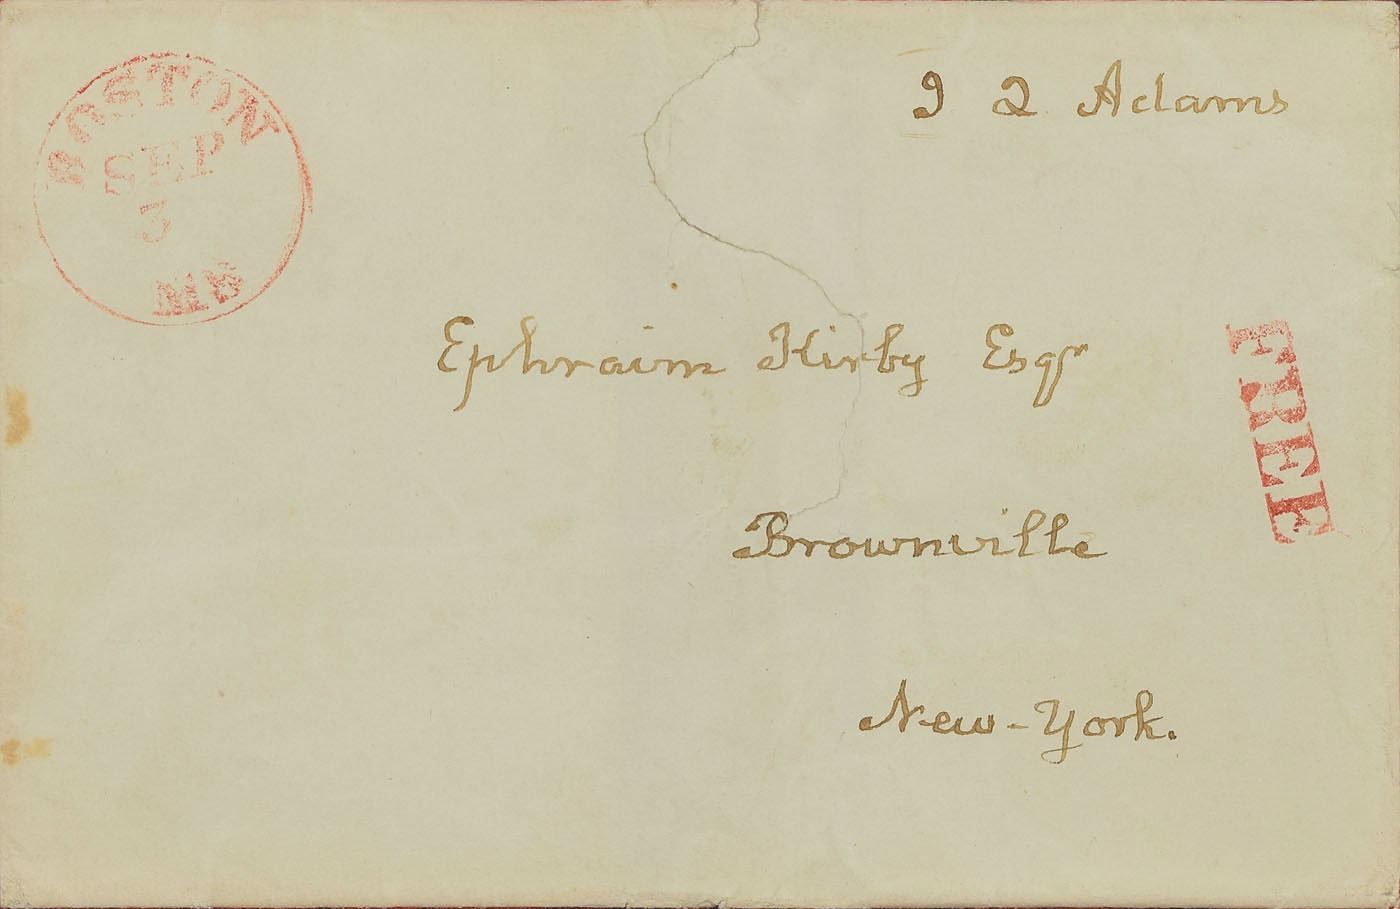 J Q Adams
BOSTON
SEP
3
MS
Ephraim Kirby Esqr
FREE
Brownville
New-York.